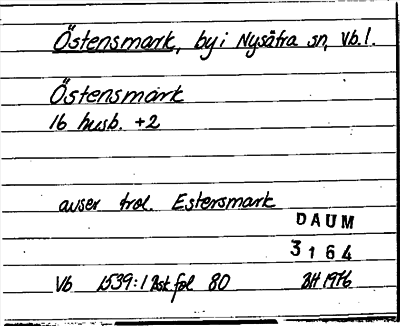 Östensmark, by i Nysätra sn, Vb. l.
Östensmark
16 husb. +2
avser trol. Estersmark
DAUM
3164
Vb 1539:1 Bsk fol 80
BH 1976